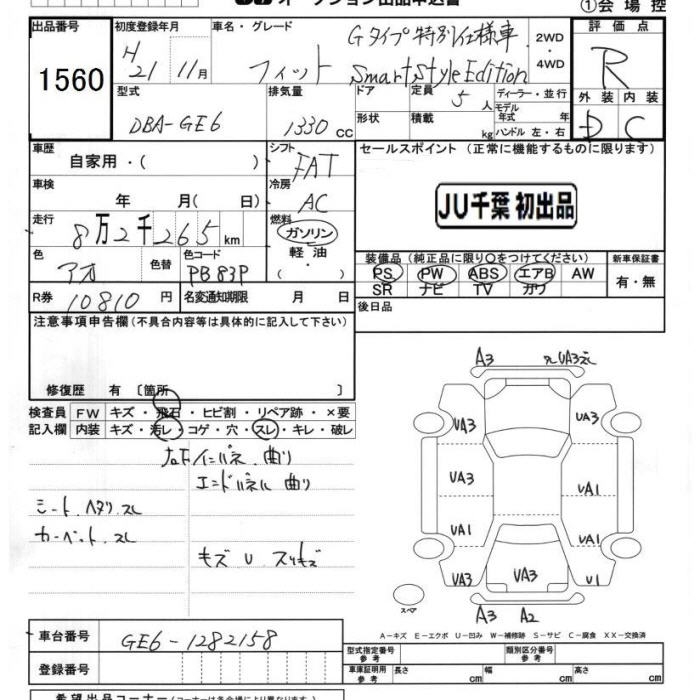 オークション出品申込書
①会場控
出品番号
1560
初度登録年月
H21 11月
車名・グレード
フィット
Gタイプ特別仕様車
Smart Style Edition
2WD
・
4WD
評価点
R
外装 内装
D C
型式
DBA-GE6
排気量
1330 CC
ドア
形状
定員
5人
積載
kg
ディーラー・並行
モデル
年式 年
ハンドル 左・右
車歴
自家用・( )
シフト
FAT
セールスポイント (正常に機能するものに限ります)
JU千葉 初出品
車検
年 月( 日)
冷房
AC
走行
8万2千265km
燃料
ガソリン
軽油
・
( )
色
アオ
色替
色コード
PB83P
装備品(純正品に限り○をつけてください)
PS PW ABS エアB AW
SR ナビ TV カワ
新車保証書
有・無
R券
10810円
名変通知期限
月 日
後日品
注意事項申告欄(不具合内容等は具体的に記入して下さい)
修復歴 有 〔箇所 〕
検査員
記入欄
FW キズ・飛石・ヒビ割・リペア跡・×要
内装 キズ・汚レ・コゲ・穴・スレ・キレ・破レ
右Fインパネ 曲り
エンドパネル 曲り
シート ヘタリ スレ
カーペット スレ
キズ U スリキズ
A3
UA3
UA3
UA3
UA3
UA1
UA1
UA1
UA3
UA3
U1
スペア
A3
A2
A-キズ E-エクボ U-凹み W-補修跡 S-サビ C-腐食 XX-交換済
車台番号
GE6-1282158
登録番号
型式指定番号
参考
類別区分番号
参考
車庫証明用
参考
長さ cm
幅 cm
高さ cm
希望出品コーナー(コーナーは各会場により異なります)